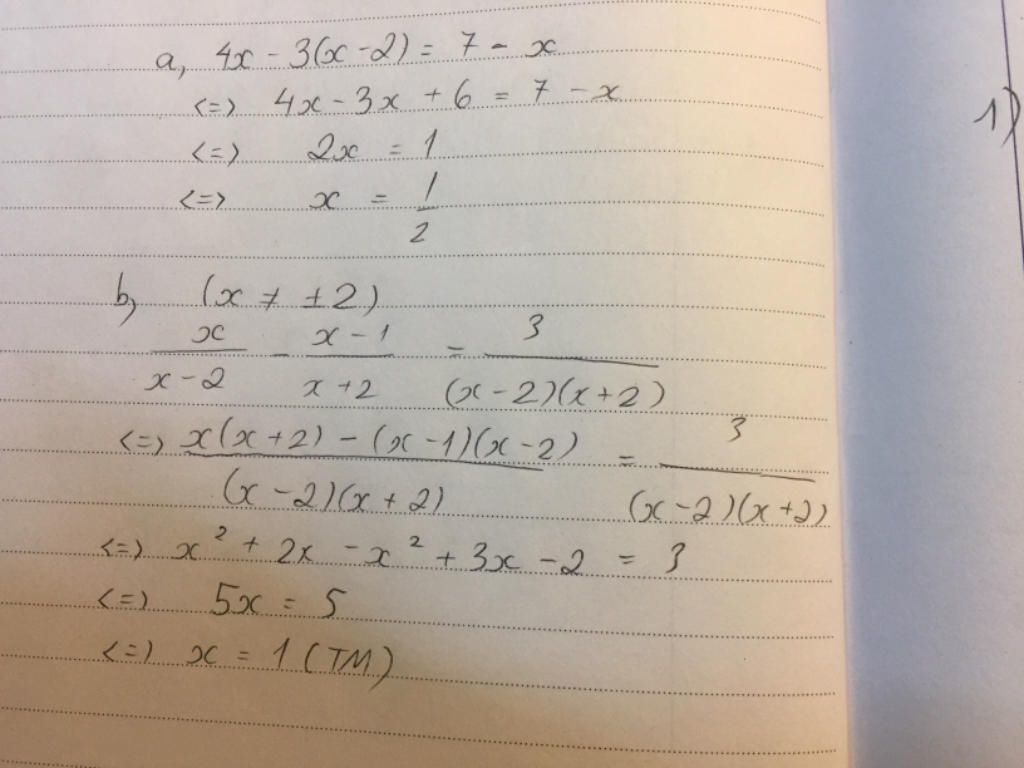 a, 4x - 3(x - 2) = 7 - x
<=> 4x - 3x + 6 = 7 - x
<=> 2x = 1
<=> x = 1/2
b, (x ≠ ±2)
x/(x - 2) - (x - 1)/(x + 2) = 3/((x - 2)(x + 2))
<=> (x(x + 2) - (x - 1)(x - 2))/((x - 2)(x + 2)) = 3/((x - 2)(x + 2))
<=> x² + 2x - x² + 3x - 2 = 3
<=> 5x = 5
<=> x = 1 (TM)
1)